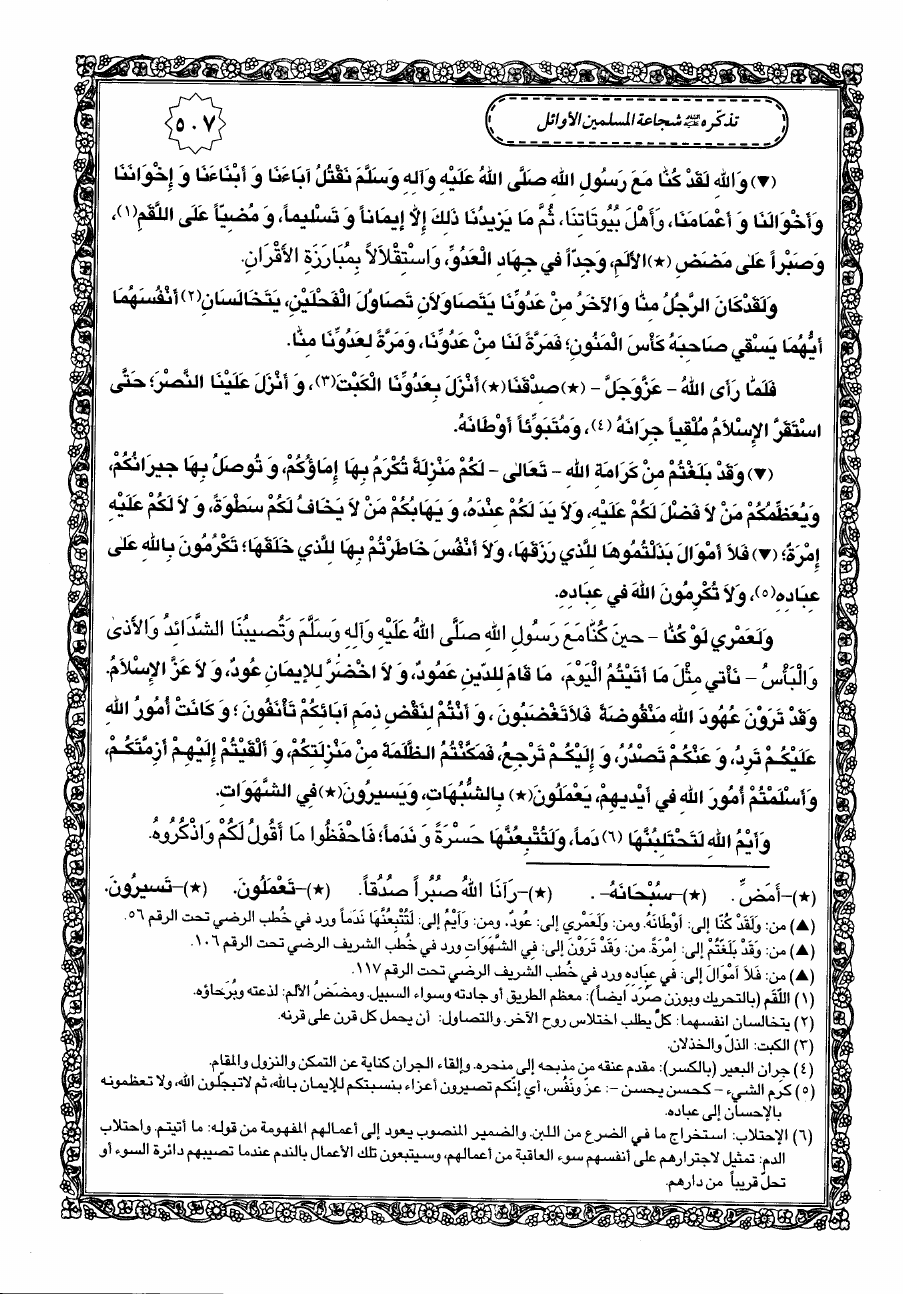 تذكّره عليه السلام شجاعة المسلمين الأوائل
٥٠٧
(▼) وَاللهِ لَقَدْ كُنَّا مَعَ رَسُولِ اللهِ صَلَّى اللهُ عَلَيْهِ وَآلِهِ وَسَلَّمَ نَقْتُلُ آبَاءَنَا وَ أَبْنَاءَنَا وَ إِخْوَانَنَا
وَأَخْوَالَنَا وَ أَعْمَامَنَا، وَأَهْلَ بُيُوتَاتِنَا، ثُمَّ مَا يَزِيدُنَا ذَلِكَ إِلَّا إِيمَاناً وَ تَسْلِيماً، وَ مُضِيّاً عَلَى اللَّقَمِ(١)،
وَصَبْراً عَلَى مَضَضِ (★) الأَلَمِ، وَجِدّاً في جِهَادِ الْعَدُوِّ، وَاسْتِقْلَالاً بِمُبَارَزَةِ الأَقْرَانِ.
وَلَقَدْ كَانَ الرَّجُلُ مِنَّا وَالآخَرُ مِنْ عَدُوِّنَا يَتَصَاوَلَانِ تَصَاوُلَ الْفَحْلَيْنِ، يَتَخَالَسَانِ(٢) أَنْفُسَهُمَا
أَيُّهُمَا يَسْقي صَاحِبَهُ كَأْسَ الْمَنُونِ؛ فَمَرَّةً لَنَا مِنْ عَدُوِّنَا، وَمَرَّةً لِعَدُوِّنَا مِنَّا.
فَلَمَّا رَأَى اللهُ – عَزَّوَجَلَّ – (★) صِدْقَنَا (★) أَنْزَلَ بِعَدُوِّنَا الْكَبْتَ(٣)، وَ أَنْزَلَ عَلَيْنَا النَّصْرَ؛ حَتَّى
اسْتَقَرَّ الإِسْلَامُ مُلْقِياً جِرَانَهُ (٤)، وَمُتَبَوِّئاً أَوْطَانَهُ.
(▼) وَقَدْ بَلَغْتُمْ مِنْ كَرَامَةِ اللهِ – تَعَالَى – لَكُمْ مَنْزِلَةً تُكْرَمُ بِهَا إِمَاؤُكُمْ، وَ تُوصَلُ بِهَا جِيرَانُكُمْ،
وَيُعَظِّمُكُمْ مَنْ لَا فَضْلَ لَكُمْ عَلَيْهِ، وَلَا يَدَ لَكُمْ عِنْدَهُ، وَ يَهَابُكُمْ مَنْ لَا يَخَافُ لَكُمْ سَطْوَةً، وَ لَا لَكُمْ عَلَيْهِ
إِمْرَةٌ؛ (▼) فَلَا أَمْوَالَ بَذَلْتُمُوهَا لِلَّذي رَزَقَهَا، وَلَا أَنْفُسَ خَاطَرْتُمْ بِهَا لِلَّذي خَلَقَهَا؛ تَكْرُمُونَ بِاللهِ عَلَى
عِبَادِهِ(٥)، وَلَا تُكْرِمُونَ اللهَ في عِبَادِهِ.
وَلَعَمْرِي لَوْ كُنَّا – حينَ كُنَّا مَعَ رَسُولِ اللهِ صَلَّى اللهُ عَلَيْهِ وَآلِهِ وَسَلَّمَ وَتُصيبُنَا الشَّدَائِدُ وَالأَذَى
وَالْبَأْسُ – نَأْتي مِثْلَ مَا أَتَيْتُمُ الْيَوْمَ، مَا قَامَ لِلدّينِ عَمُودٌ، وَ لَا اخْضَرَّ لِلإيمَانِ عُودٌ، وَ لَا عَزَّ الإِسْلَامُ.
وَقَدْ تَرَوْنَ عُهُودَ اللهِ مَنْقُوضَةً فَلَاتَغْضَبُونَ، وَ أَنْتُمْ لِنَقْضِ ذِمَمِ آبَائِكُمْ تَأْنَفُونَ؛ وَ كَانَتْ أُمُورُ اللهِ
عَلَيْكُمْ تَرِدُ، وَ عَنْكُمْ تَصْدُرُ، وَ إِلَيْكُمْ تَرْجِعُ، فَمَكَّنْتُمُ الظَّلَمَةَ مِنْ مَنْزِلَتِكُمْ، وَ أَلْقَيْتُمْ إِلَيْهِمْ أَزِمَّتَكُمْ،
وَأَسْلَمْتُمْ أُمُورَ اللهِ في أَيْديهِمْ، يَعْمَلُونَ(★) بِالشُّبُهَاتِ، وَيَسيرُونَ(★) في الشَّهَوَاتِ.
وَأَيْمُ اللهِ لَتَحْتَلِبُنَّهَا (٦) دَماً، وَلَتُتْبِعُنَّهَا حَسْرَةً وَ نَدَماً؛ فَاحْفَظُوا مَا أَقُولُ لَكُمْ وَاذْكُرُوهُ.
(★)–أَمَضِّ. (★)–سُبْحَانَهُ–. (★)–رَآنَا اللهُ صُبُراً صُدُقاً. (★)–تَعْمَلُونَ. (★)–تَسيرُونَ.
(▲) من: وَلَقَدْ كُنَّا إلى: أَوْطَانَهُ. ومن: وَلَعَمْري إلى: عُودٌ. ومن: وَأَيْمُ إلى: لَتُتْبِعُنَّهَا نَدَماً ورد في خُطب الرضي تحت الرقم ٥٦.
(▲) من: وَقَدْ بَلَغْتُمْ إلى: امْرَةٌ. من: وَقَدْ تَرَوْنَ إلى: في الشَّهَوَاتِ ورد في خُطب الشريف الرضي تحت الرقم ١٠٦.
(▲) من: فَلَا أَمْوَالَ إلى: في عِبَادِهِ ورد في خُطب الشريف الرضي تحت الرقم ١١٧.
(١) اللَّقَم (بالتحريك وبوزن صُرَد ايضاً): معظم الطريق أو جادته وسواء السبيل. ومضضُ الألم: لذعته وبُرَحاؤه.
(٢) يتخالسان انفسهما: كلٌّ يطلب اختلاس روح الآخر. والتصاول: أن يحمل كل قرن على قرنه.
(٣) الكبت: الذلّ والخذلان.
(٤) جِران البعير (بالكسر): مقدم عنقه من مذبحه إلى منحره. وإلقاء الجران كناية عن التمكن والنزول والمقام.
(٥) كرُم الشيء – كحسن يحسن –: عزّ ونفُس، أي إنّكم تصيرون أعزاء بنسبتكم للإيمان بالله، ثم لاتبجّلون الله، ولا تعظمونه
بالإحسان إلى عباده.
(٦) الإحتلاب: استخراج ما في الضرع من اللبن. والضمير المنصوب يعود إلى أعمالهم المفهومة من قوله: ما أتيتم. واحتلاب
الدم: تمثيل لاجترارهم على أنفسهم سوء العاقبة من أعمالهم، وسيتبعون تلك الأعمال بالندم عندما تصيبهم دائرة السوء أو
تحلّ قريباً من دارهم.